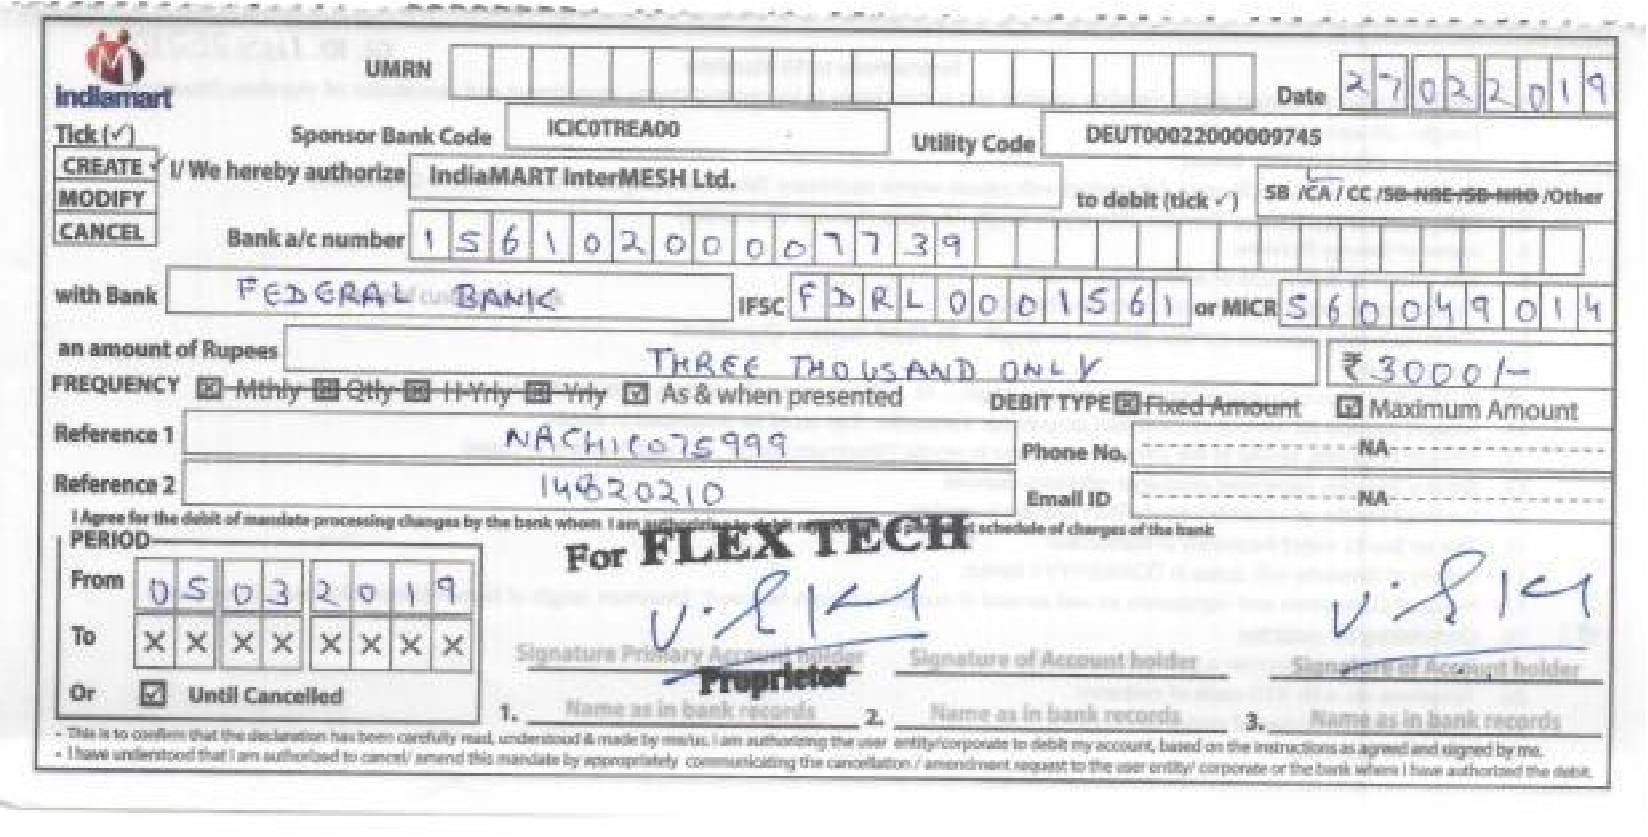 indiamart
UMRN
Date 27022019
Tick (✓)
Sponsor Bank Code ICIC0TREA00 Utility Code DEUT00022000009745
CREATE ✓ I/ We hereby authorize IndiaMART InterMESH Ltd. to debit (tick ✓) SB /CA / CC /SB-NRE /SB-NRO /Other
MODIFY
CANCEL
Bank a/c number 15610200007739
with Bank FEDERAL BANK IFSC FDRL0001561 or MICR 560049014
an amount of Rupees THREE THOUSAND ONLY ₹ 3000/-
FREQUENCY ☒ Mthly ☒ Qtly ☒ H-Yrly ☒ Yrly ☑ As & when presented DEBIT TYPE ☒ Fixed Amount ☑ Maximum Amount
Reference 1 NACHIC075999 Phone No. NA
Reference 2 14820210 Email ID NA
I Agree for the debit of mandate processing charges by the bank whom I am authorizing to debit schedule of charges of the bank
PERIOD
For FLEX TECH
From 05032019
To XXXXXXXX
Signature Primary Account holder Signature of Account holder Signature of Account holder
Proprietor
Or ☑ Until Cancelled
1. Name as in bank records 2. Name as in bank records 3. Name as in bank records
- This is to confirm that the declaration has been carefully read, understood & made by me/us. I am authorizing the user entity/corporate to debit my account, based on the instructions as agreed and signed by me.
- I have understood that I am authorized to cancel/ amend this mandate by appropriately communicating the cancellation / amendment request to the user entity/ corporate or the bank where I have authorized the debit.